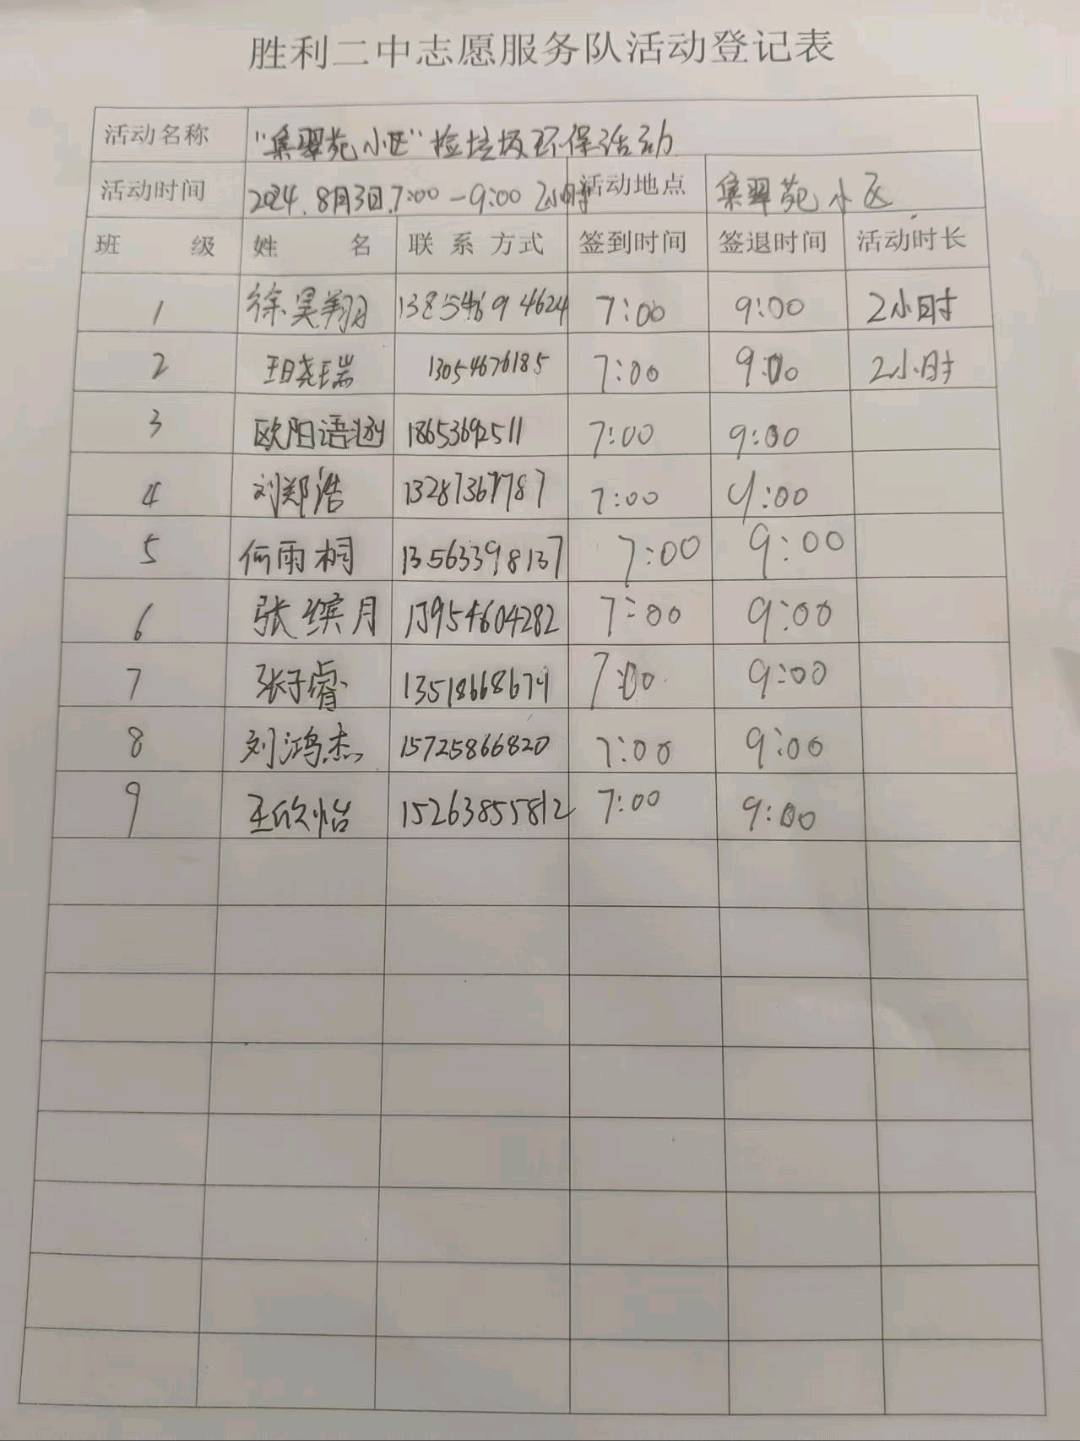 胜利二中志愿服务队活动登记表
活动名称 "集翠苑小区"捡垃圾环保活动
活动时间 2024.8月3日.7:00-9:00 2小时 活动地点 集翠苑小区
班级 姓名 联系方式 签到时间 签退时间 活动时长
1 徐昊翔 13854694624 7:00 9:00 2小时
2 王晓瑞 13054676185 7:00 9:00 2小时
3 欧阳语 18653692511 7:00 9:00
4 刘郑浩 13287367787 7:00 9:00
5 何雨桐 13563398137 7:00 9:00
6 张缤月 13954604282 7:00 9:00
7 张子睿 7:00 9:00
8 刘鸿杰 15725866820 7:00 9:00
9 王欣怡 15263855812 7:00 9:00